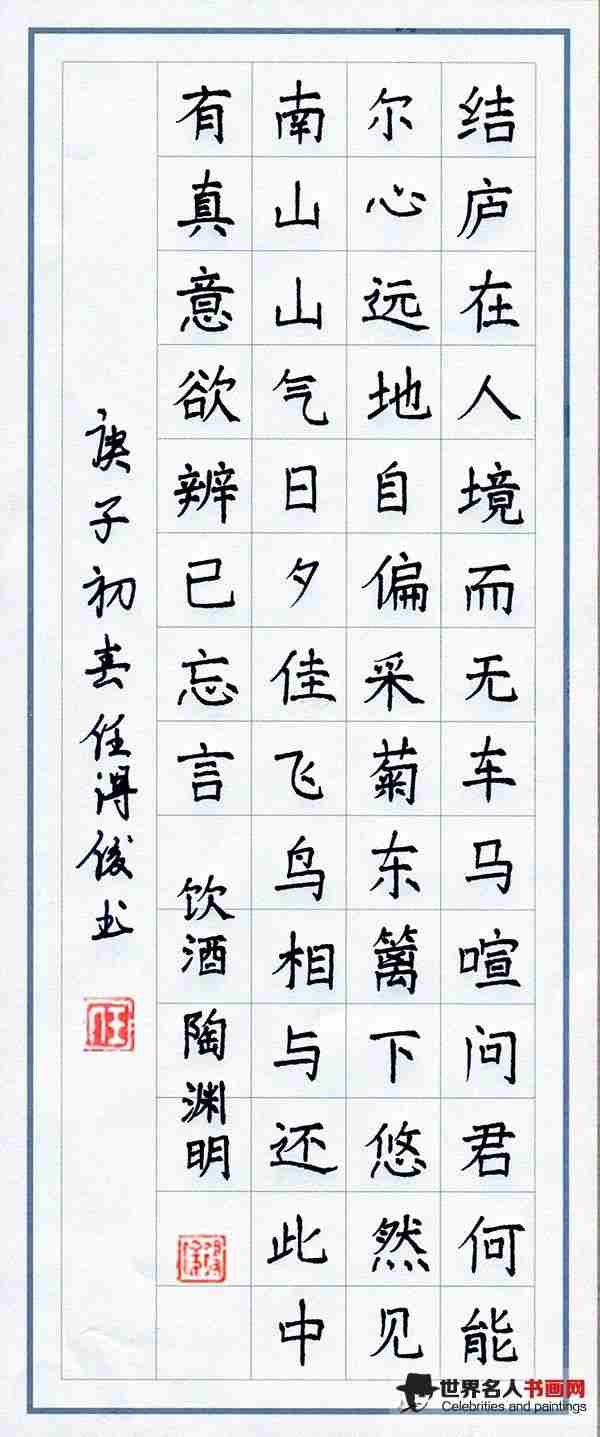 结庐在人境而无车马喧问君何能
尔心远地自偏采菊东篱下悠然见
南山山气日夕佳飞鸟相与还此中
有真意欲辨已忘言
饮酒 陶渊明
庚子初春任得俊书
任
世界名人书画网
Celebrities and paintings